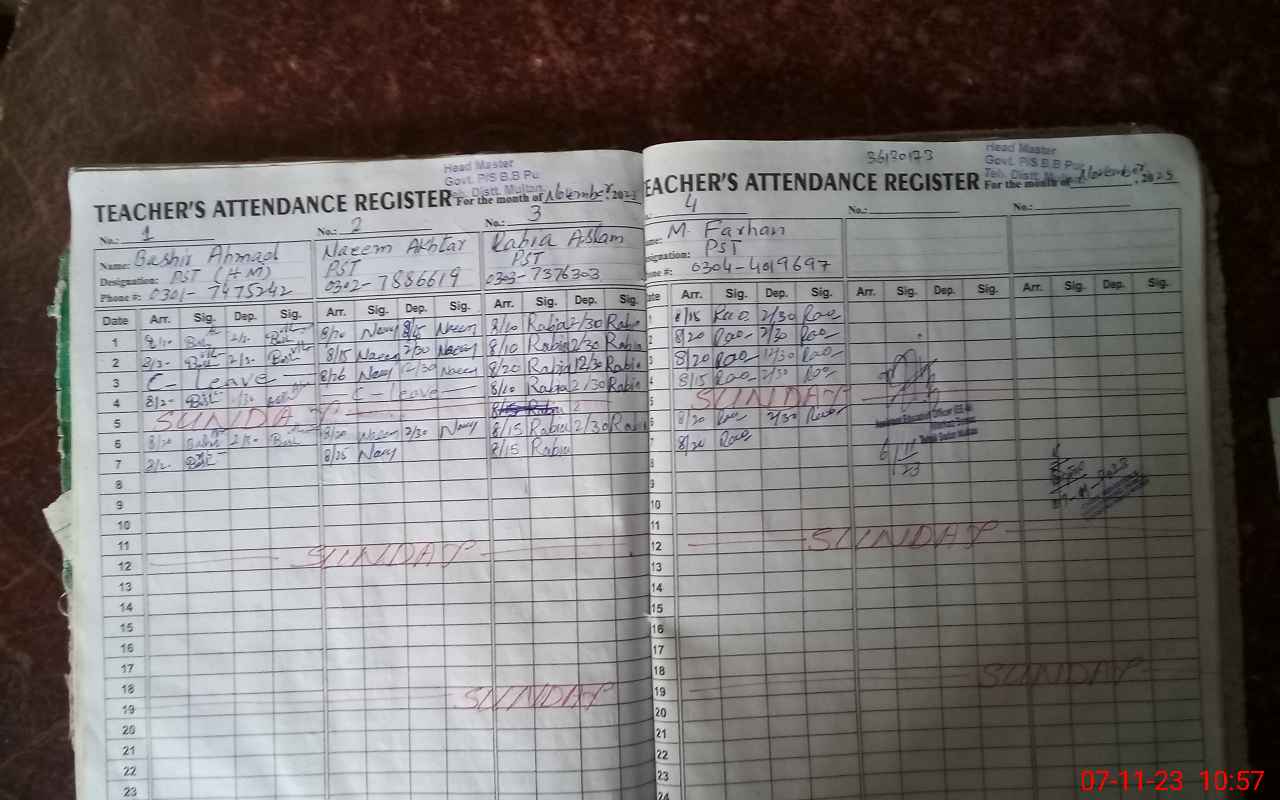 Head Master
Govt. P/S B.B Pu
Teh. Distt. Multan
TEACHER'S ATTENDANCE REGISTER For the month of November. 2023
No.: 1 No.: 2 No.: 3
Name: Bashir Ahmad Naeem Akhtar Rabia Aslam
Designation: PST (HM) PST PST
Phone #: 0301-7475242 0302-7886619 0303-7376303
Date Arr. Sig. Dep. Sig. Arr. Sig. Dep. Sig. Arr. Sig. Dep. Sig.
1 8/10 8/20 Naeem 8/10 Rabia 2/30 Rabia
2 8/15 Naeem 2/30 Naeem 8/10 Rabia 2/30 Rabia
3 C-Leave 8/26 12/30 Naeem 8/20 Rabia 12/30 Rabia
4 C-leave 8/10 Rabia 2/30 Rabia
5 SUNDAY
6 8/20 8/20 Naeem 2/30 8/15 Rabia 2/30 Rabia
7 8/25 8/15 Rabia
8
9
10
11
12 SUNDAY
13
14
15
16
17
18
19 SUNDAY
20
21
22
23
36120173
Head Master
Govt. P/S B.B Pu
Teh. Distt.
EACHER'S ATTENDANCE REGISTER For the month of November. 2023
4 No.: No.:
ame: M. Farhan
esignation: PST
one #: 0304-4019697
Date Arr. Sig. Dep. Sig. Arr. Sig. Dep. Sig. Arr. Sig. Dep. Sig.
1 8/15 Rao 2/30 Rao
2 8/20 Rao 2/30 Rao
3 8/20 Rao 12/30 Rao
4 8/15 Rao 2/30 Rao
5 SUNDAY
6 8/20 Rao 2/30 Rao
7 8/20 Rao
6/11/23
8
9
10
11
12 SUNDAY
13
14
15
16
17
18
19 SUNDAY
20
21
22
23
24
07-11-23 10:57